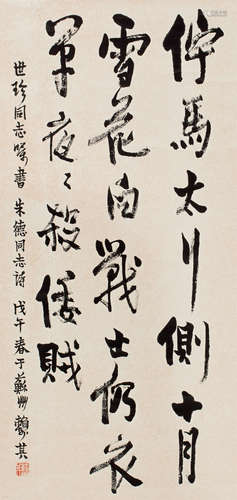 伫馬太行側十月
雪花白戰士仍衣
單夜〻殺倭賊
世珍同志嘱書 朱德同志詩 戊午春于蘇州 費新我